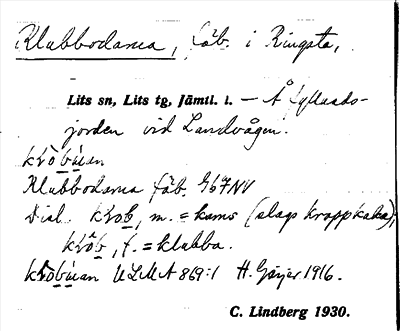 Klubbodarna, fäb. i Ringsta,
Lits sn, Lits tg, Jämtl. l. — Å fyllnads-
jorden vid Landvågen.
Klubbodarna fäb. 967NV
Dial. krob, m. = kams (slags kroppkaka),
f. = klubba.
ULMA 869:1 H. Geijer 1916.
C. Lindberg 1930.